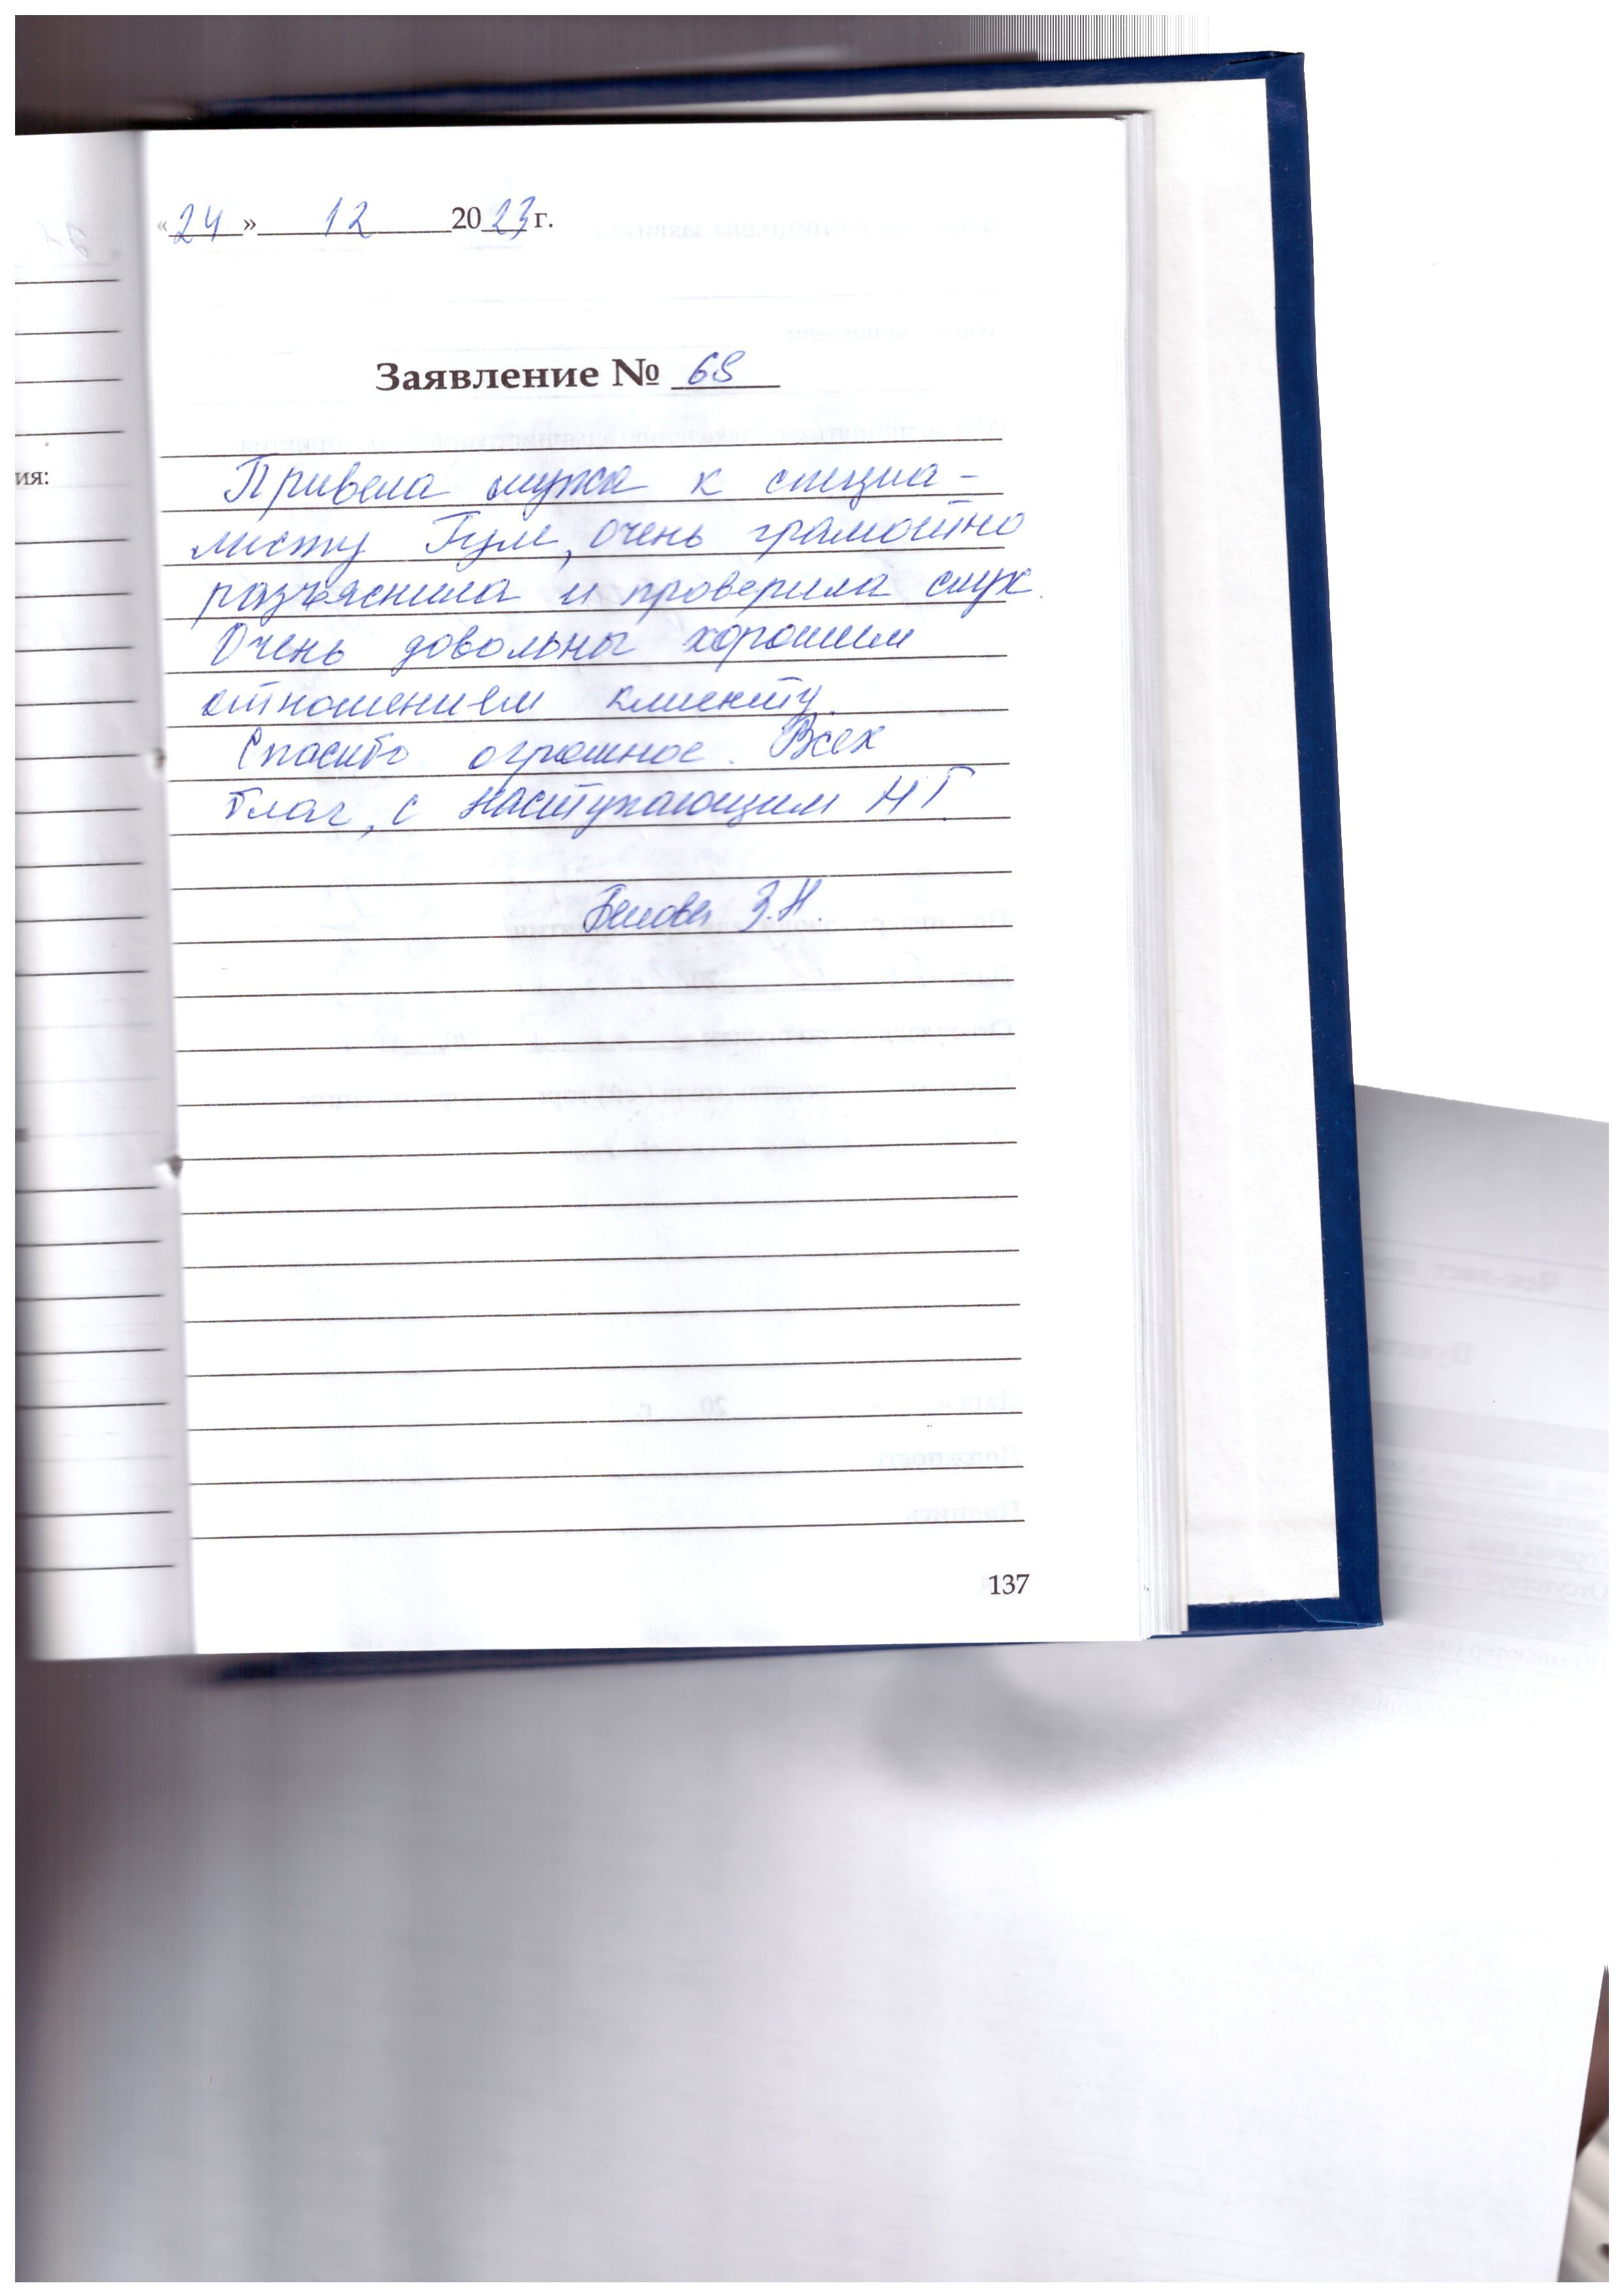 «24» 12 2023 г.
Заявление № 68
ия:
Привела мужа к специа-
листу Гуле, очень грамотно
разъяснила и проверила слух.
Очень довольны хорошим
отношением клиенту.
Спасибо огромное. Всех
благ, с наступающим НГ.
З.Н.
137